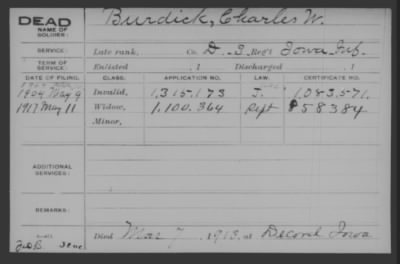 DEAD Burdick, Charles W.
NAME OF SOLDIER:
SERVICE: Late rank, Co. D. 3 Reg't Iowa Inf.
TERM OF SERVICE: Enlisted , 1 Discharged , 1
DATE OF FILING. CLASS. APPLICATION NO. LAW. CERTIFICATE NO.
1904 May 9 Invalid, 1,315,173 J. 1,083,571.
1917 May 11 Widow, 1,100,364 858384
Minor,
ADDITIONAL SERVICES:
REMARKS:
Died Mar 7, 1913, at Decorah Iowa